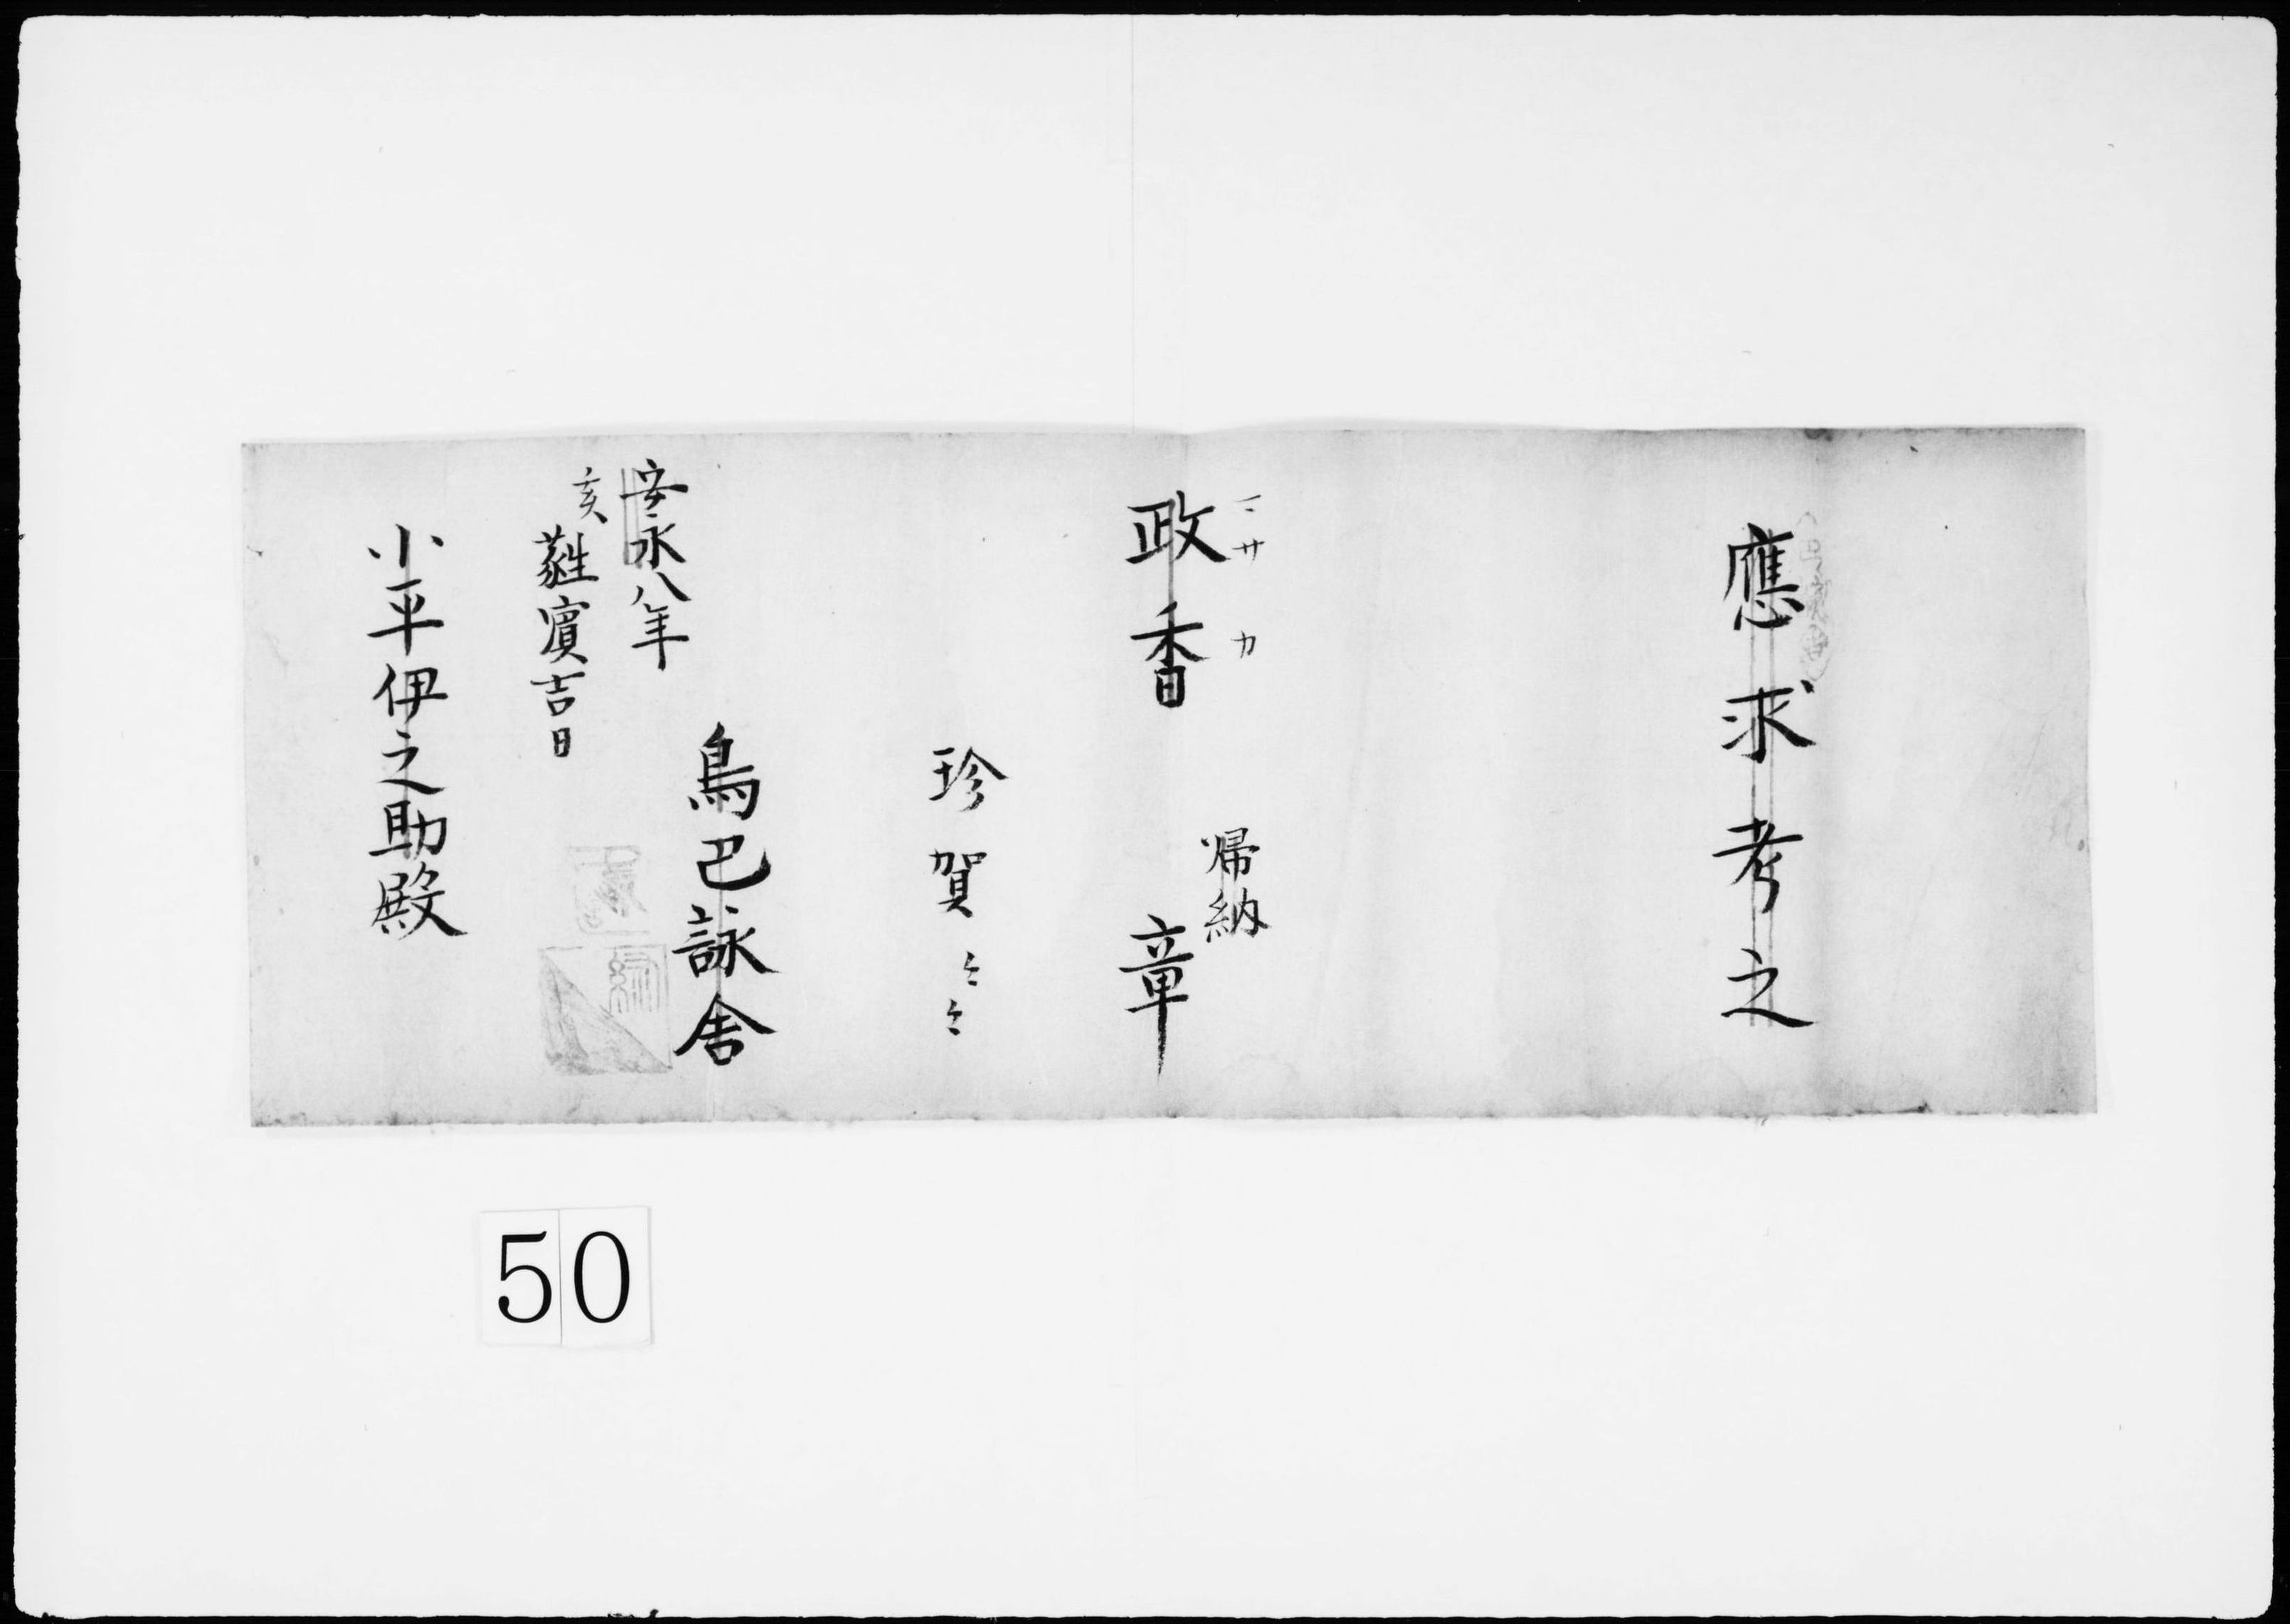 應求考之
マサ カ
政香
帰納
章
珍賀〻〻
鳥巴詠舎
安永八年
亥
蕤賓吉日
小平伊之助殿
50